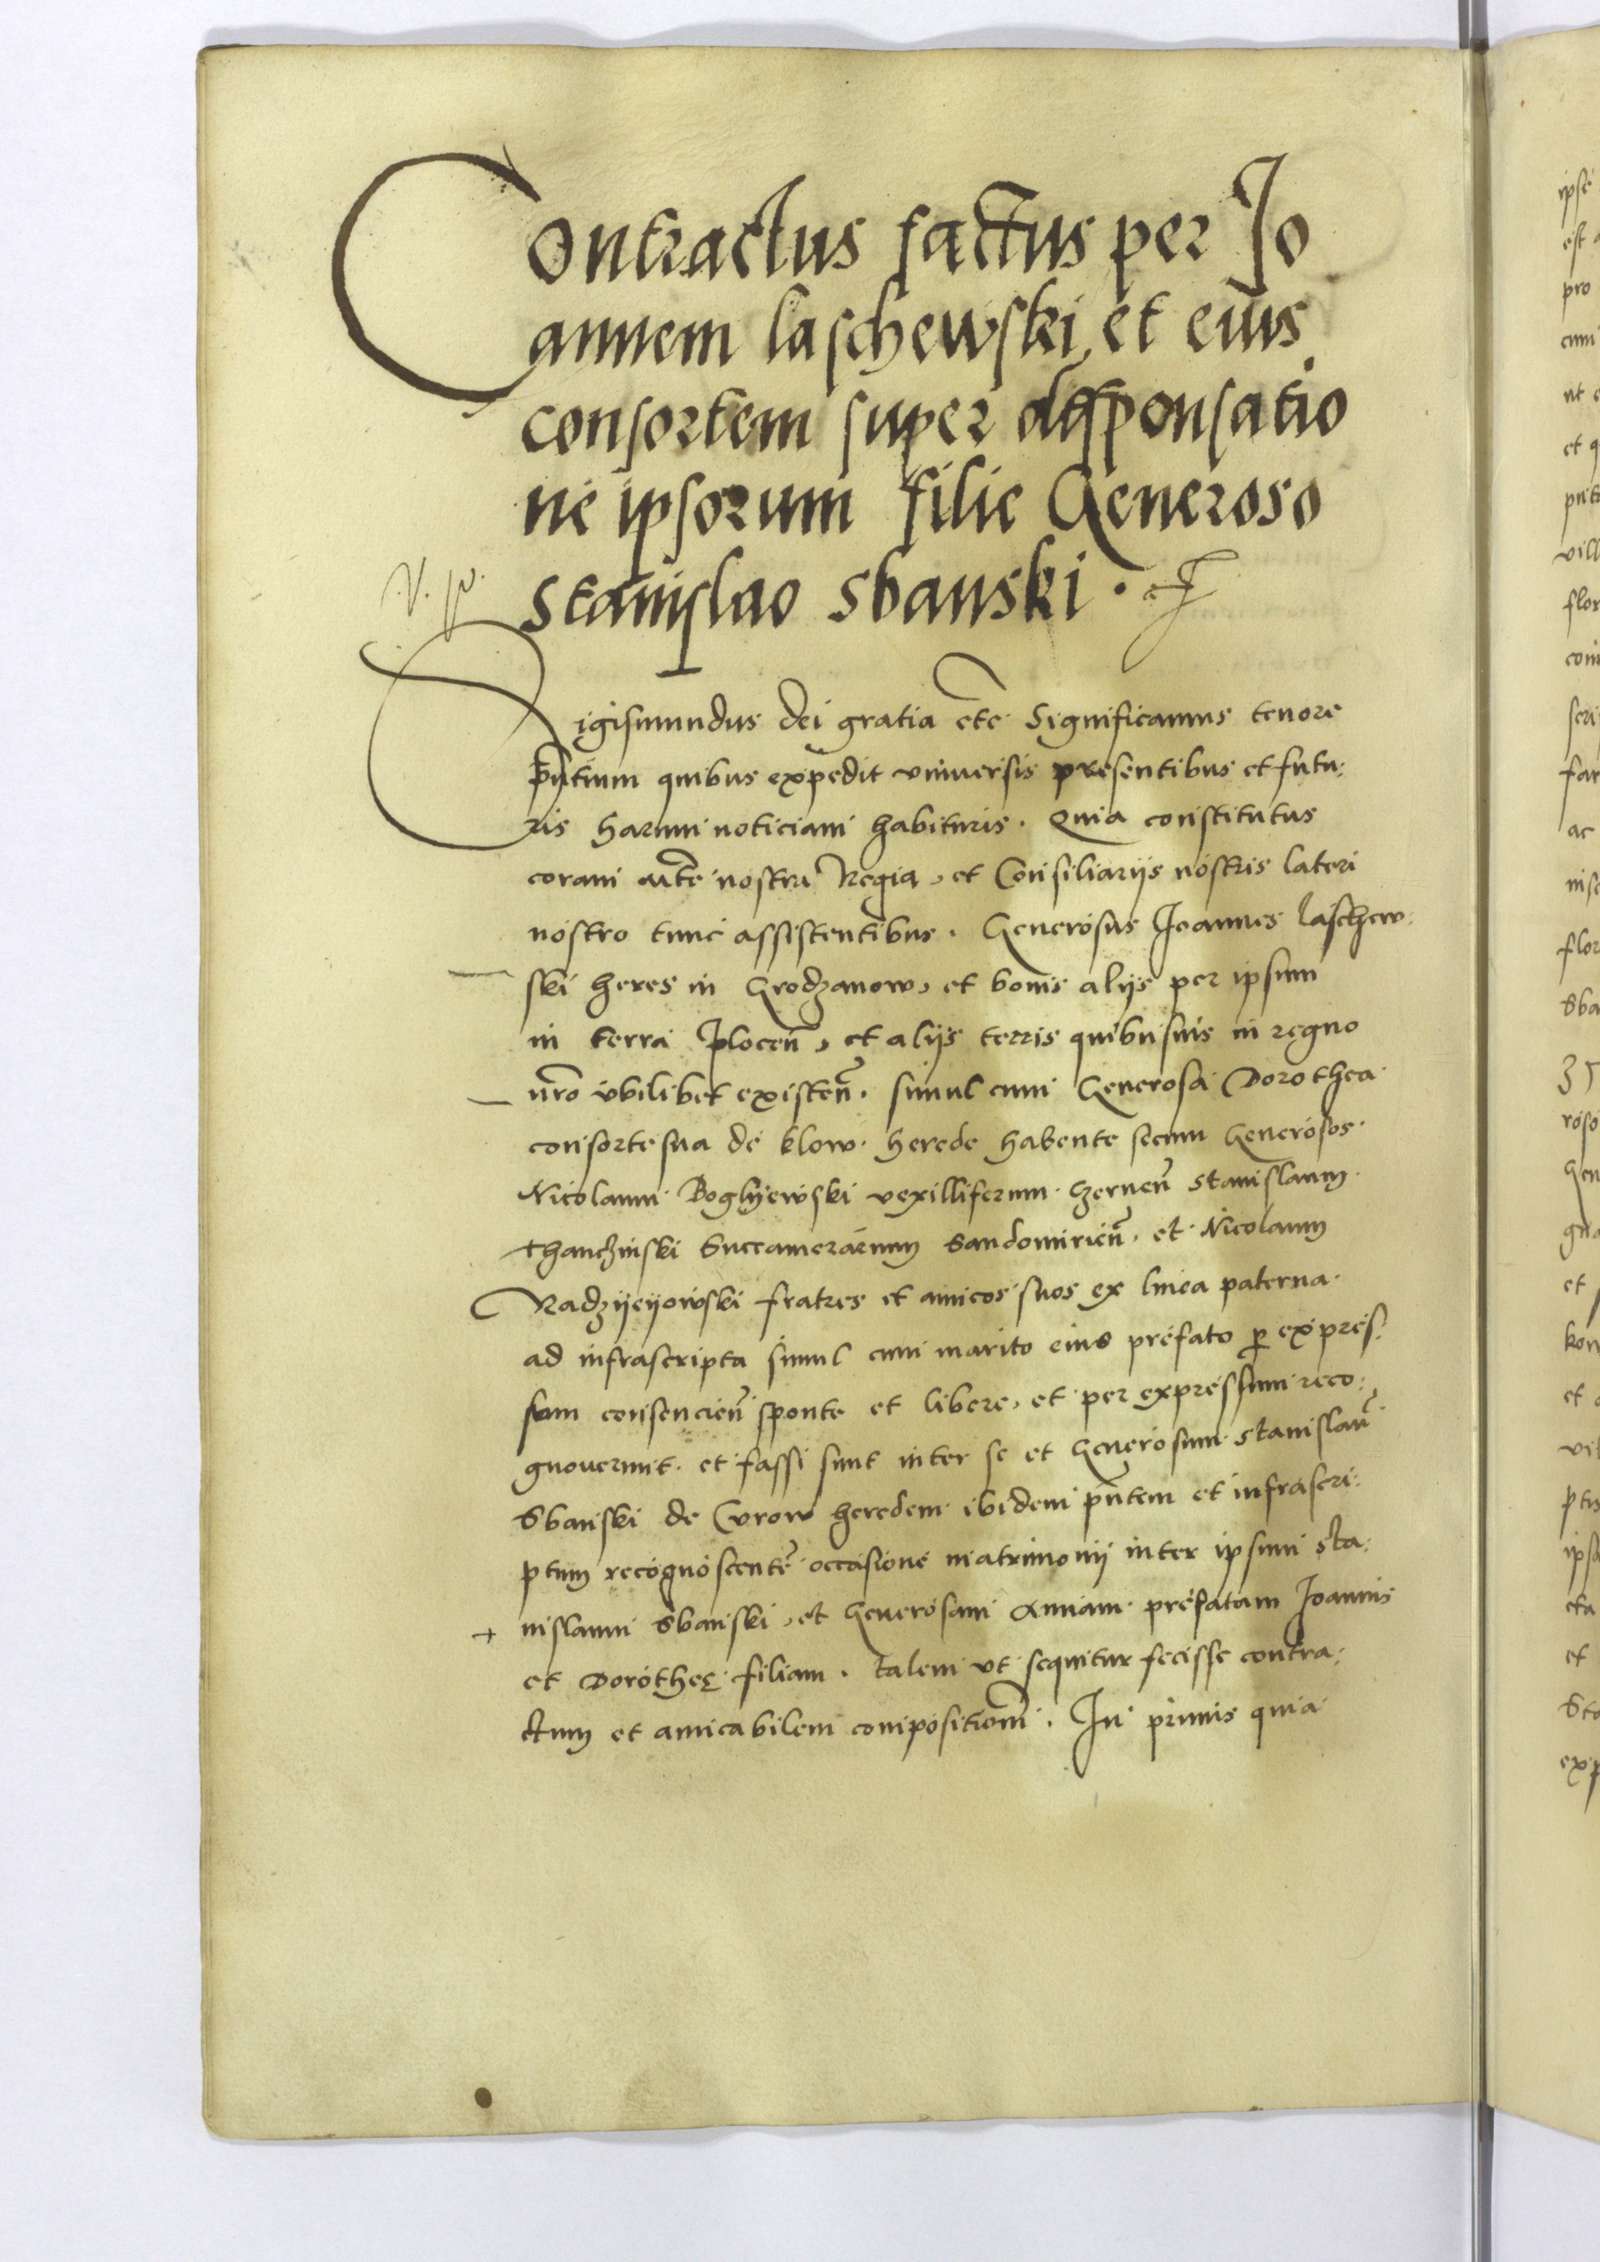 Contractus factus per Jo
annem laschewski et eius
consortem super desponsatio
ne ipsorum filie Generoso
Stanislao Sbanski.
Sigismundus dei gratia etc̄ Significamus tenore
pn̄tium quibus expedit vniuersis presentibus et futu:
ris harum noticiam habituris. Quia constitutus
coram Mte nostra Regia, et Consiliarijs nostris lateri
nostro tunc assistentibus. Generosus Joannes laschew:
ski heres in Grodzanow, et bonis alijs per ipsum
in terra plocen̄, et alijs terris quibusuis in regno
nr̄o vbilibet existen̄. simul cum Generosa Dorothea
consorte sua de klow. herede habente secum Generosos
Nicolaum Boghyewski vexilliferum Czernen̄ Stanislaum
Thanczinski Succamerarium Sandomirien̄. et Nicolaum
Radzyeyowski fratres et amicos suos ex linea paterna
ad infrascripta simul cum marito eius prefato ꝑ expres:
sum consencien̄ sponte et libere, et per expressum reco:
gnouerunt. et fassi sunt inter se et Generosum Stanislau̅
Sbanski de Curow heredem ibidem pn̄tem et infrascri:
ptum recognoscente̅ occasione matrimonij inter ipsum Sta:
+ nislaum Sbanski, et Generosam Annam prefatam Joannis
et Dorotheę filiam. talem vt sequitur fecisse contra:
ctum et amicabilem compositionem̅. In primis quia